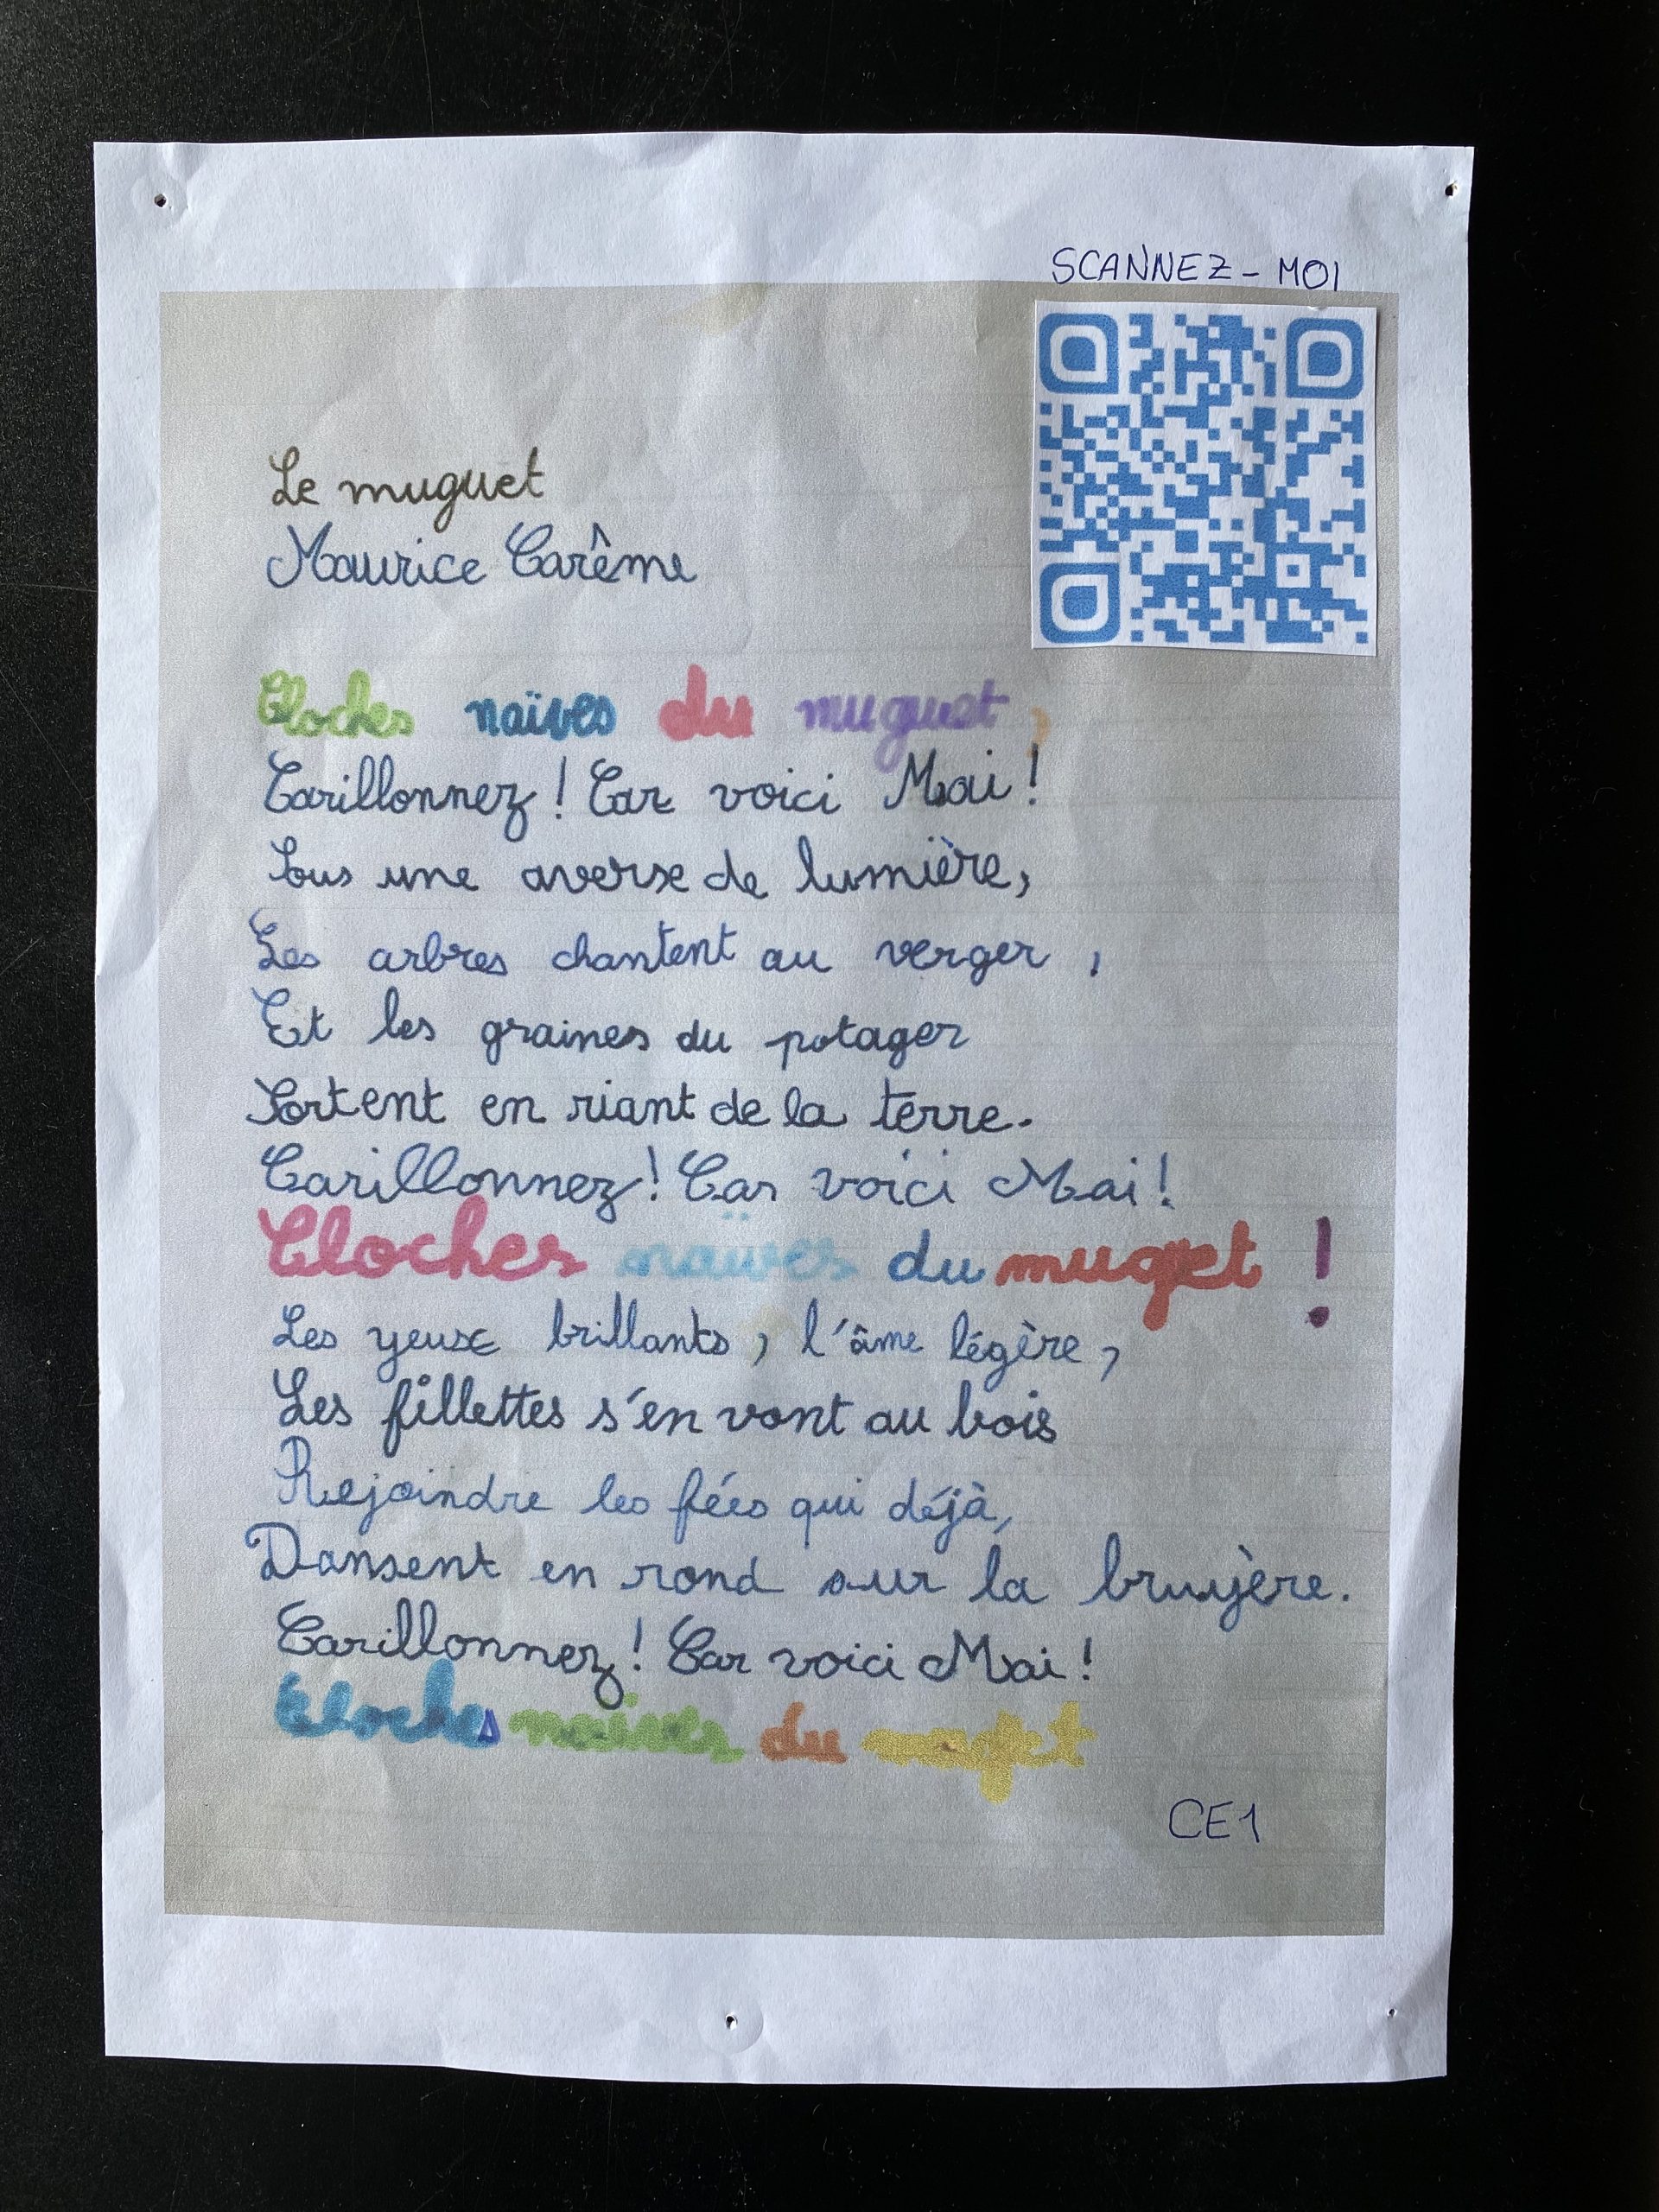 SCANNEZ - MOI
Le muguet
Maurice Carême
Cloches naïves du muguet,
Carillonnez ! Car voici Mai !
Sous une averse de lumière,
Les arbres chantent au verger,
Et les graines du potager
Sortent en riant de la terre.
Carillonnez ! Car voici Mai !
Cloches naïves du muget !
Les yeux brillants, l'âme légère,
Les fillettes s'en vont au bois
Rejoindre les fées qui déjà,
Dansent en rond sur la bruyère.
Carillonnez ! Car voici Mai !
Cloches naïves du muget
CE1